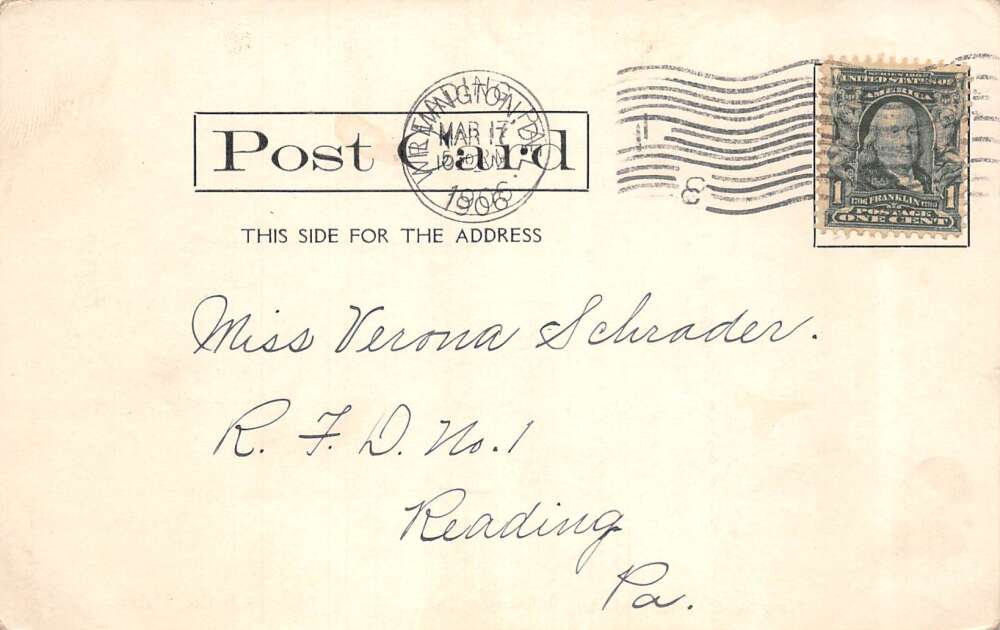 Post Card
THIS SIDE FOR THE ADDRESS
WILMINGTON, DEL.
READING, PA.
MAR 17
1906
SERIES 1902
UNITED STATES OF
AMERICA
1 1706 FRANKLIN 1790 1
POSTAGE
ONE CENT
Miss Verona Schrader.
R. F. D. No. 1
Reading
Pa.